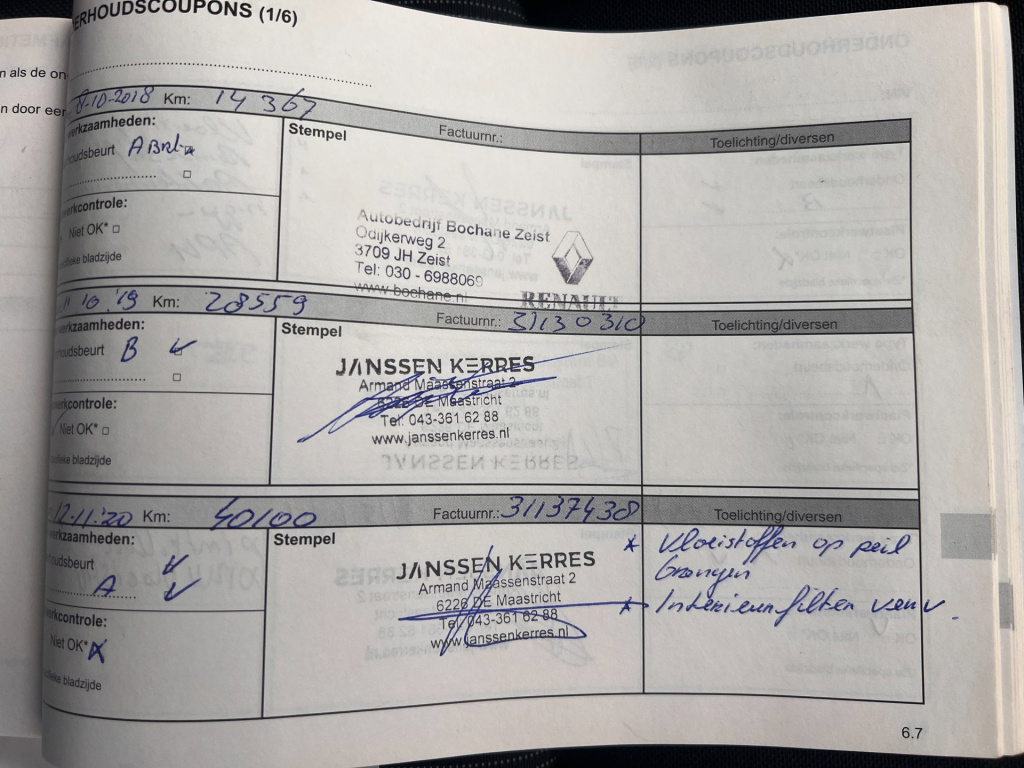 ERHOUDSCOUPONS (1/6)
n als de on
n door eer
8-10-2018 Km: 14 367
erkzaamheden:
oudsbeurt A
Stempel
Factuurnr.:
Toelichting/diversen
erkcontrole:
Niet OK*
ifieke bladzijde
Autobedrijf Bochane Zeist
Odijkerweg 2
3709 JH Zeist
Tel: 030 - 6988069
www.bochane.nl
RENAULT
10 '19 Km: 28559
erkzaamheden:
oudsbeurt B
Stempel
Factuurnr.: 31130310
Toelichting/diversen
erkcontrole:
Niet OK*
ifieke bladzijde
JANSSEN KERRES
Armand Maassenstraat 2
6226 DE Maastricht
Tel: 043-361 62 88
www.janssenkerres.nl
JANSSEN KERRES
12-11-'20 Km: 40100
erkzaamheden:
oudsbeurt
A
Stempel
Factuurnr.: 31137438
Toelichting/diversen
erkcontrole:
Niet OK*
ifieke bladzijde
JANSSEN KERRES
Armand Maassenstraat 2
6226 DE Maastricht
Tel: 043-361 62 88
www.janssenkerres.nl
* Vloeistoffen op peil
brengen
* Interieurfilter verv.
6.7